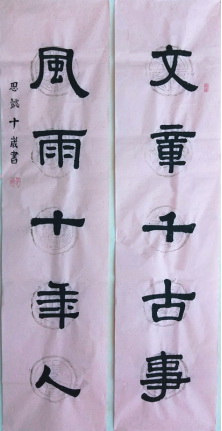 文章千古事
風雨十年人
思懿十歲書